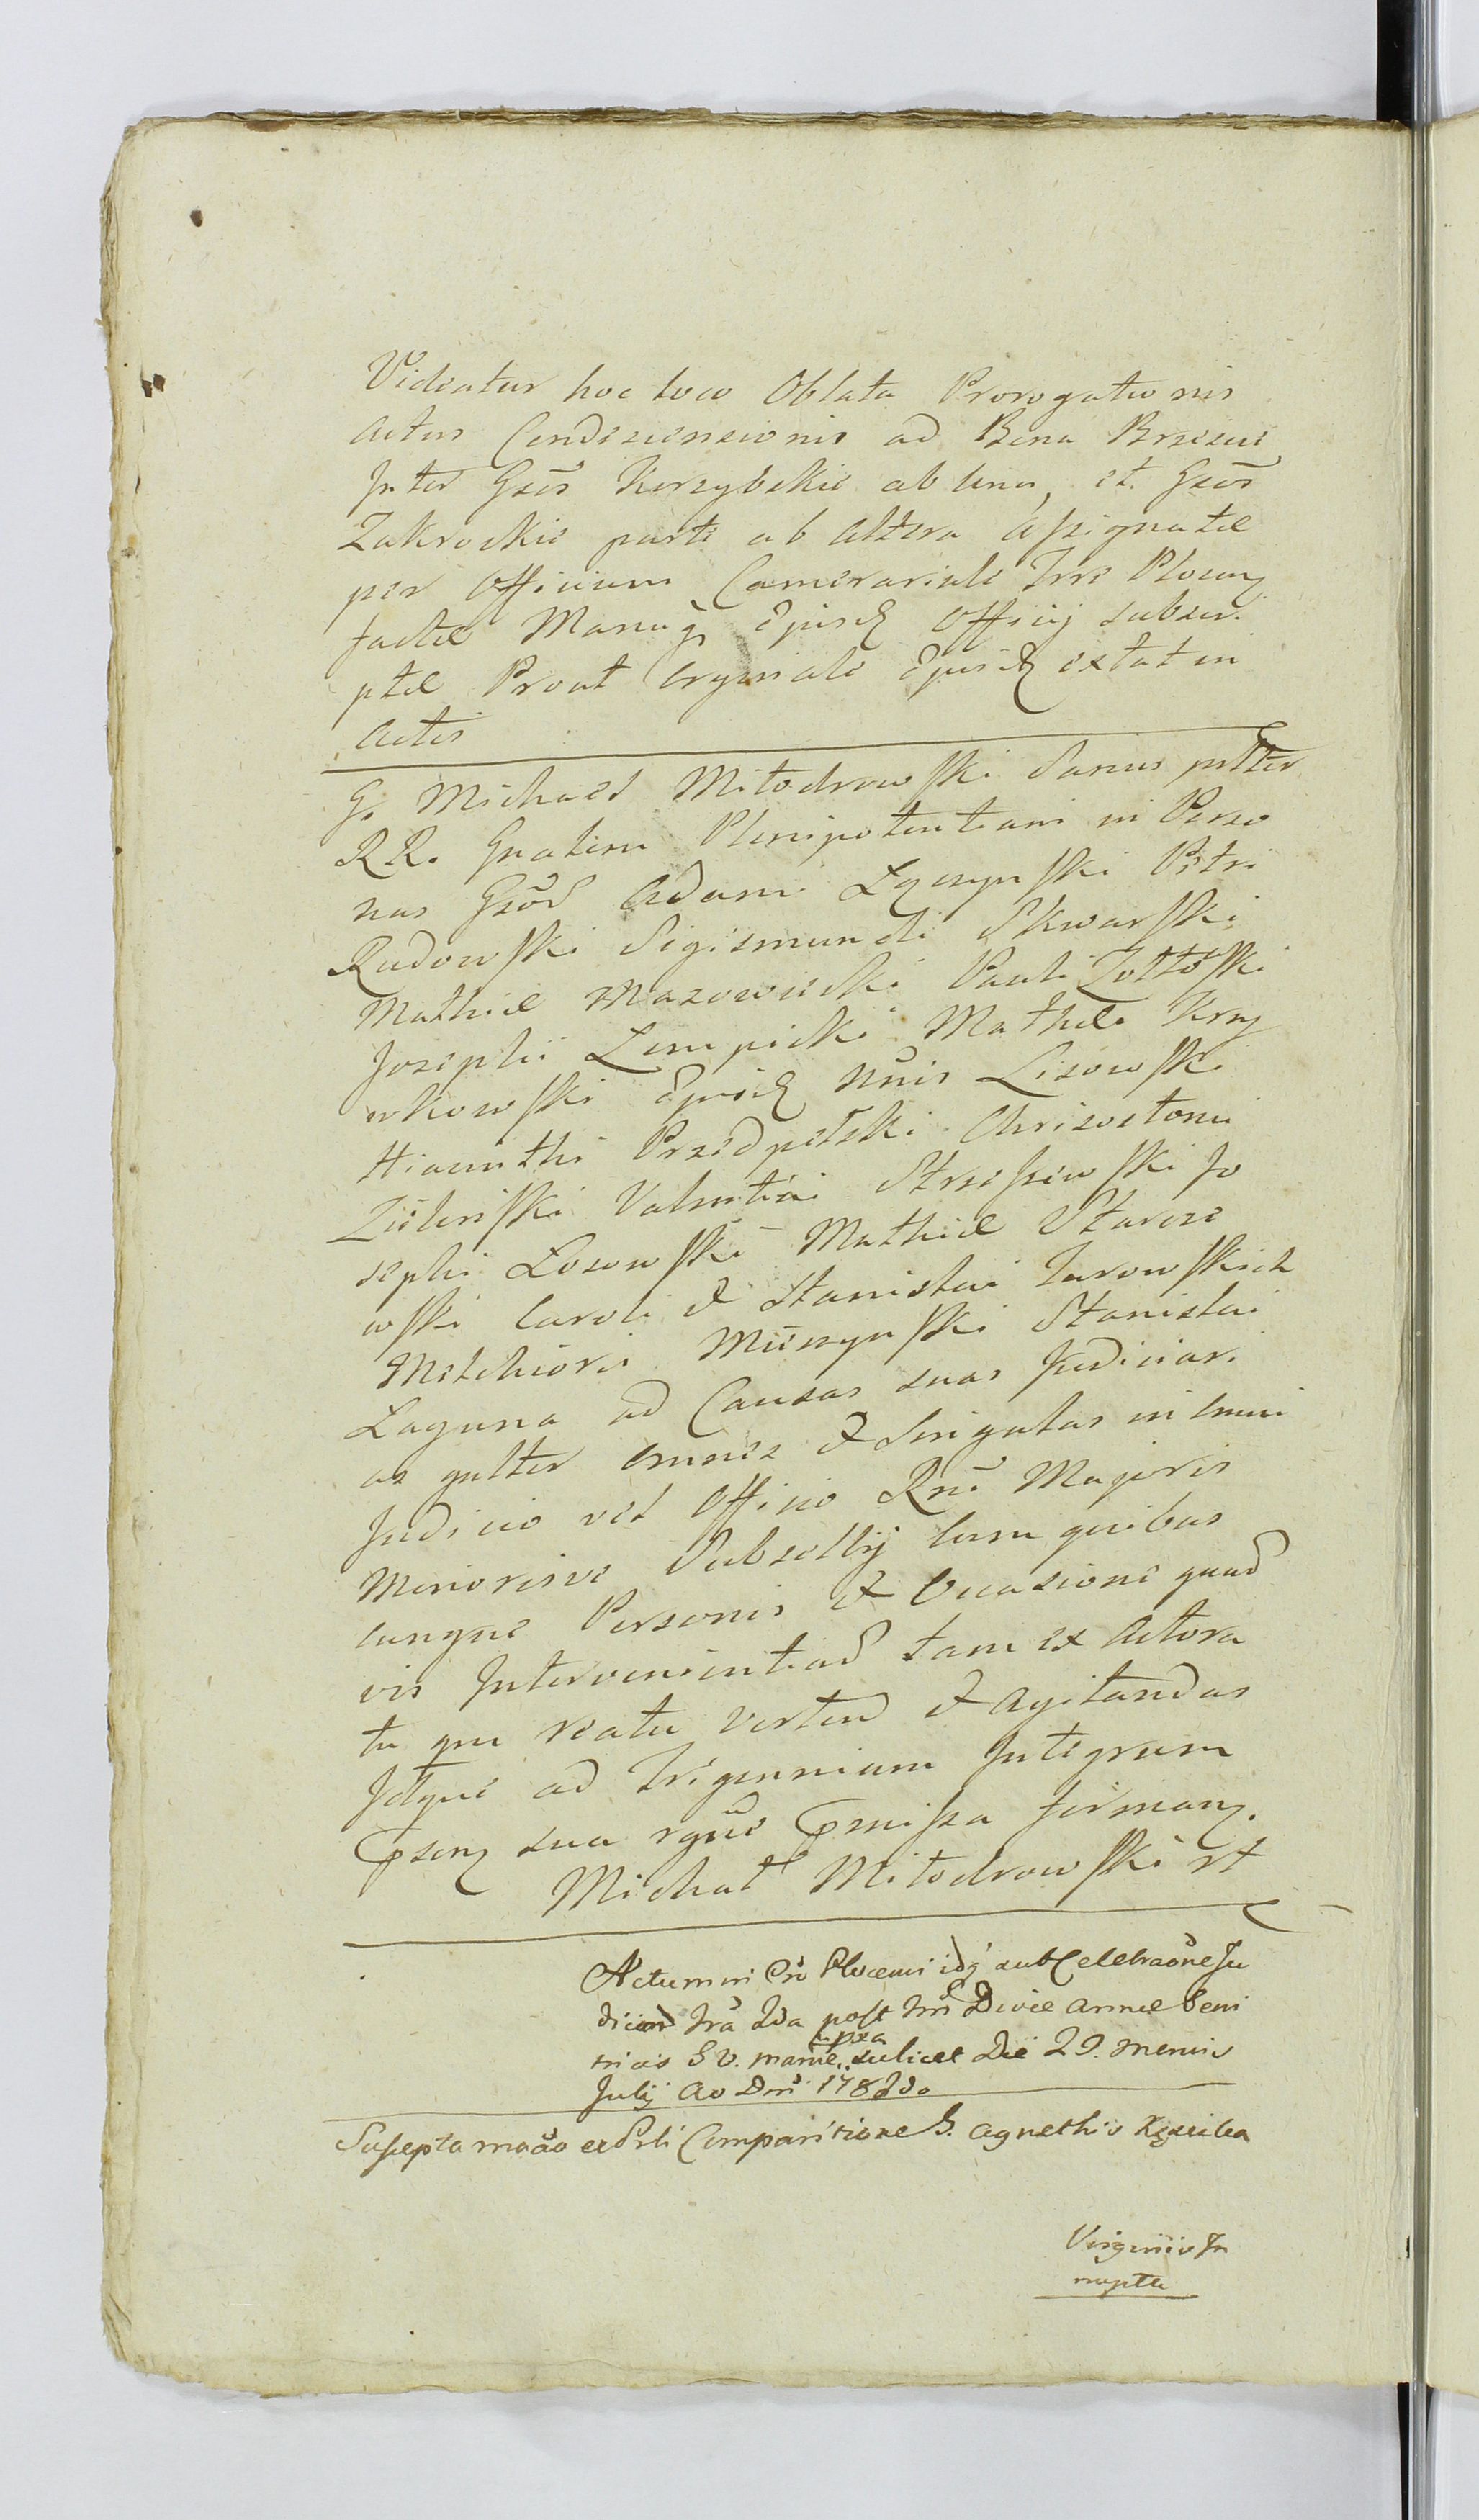 Videatur hoc loco Oblata Prorogationis
actus Condescensionis ad Bona Brzescie
Inter Gsos Korzybskie ab una, et Gsos
Zakrockie parte ab altera assignatae
per Officium Camerariale Trre Plocen
factae Manuq ejusd Officij subscri
ptae Prout originale ejusd extat in
actis
G. Michael Miłodrowski Sanus pltter
RR. Gnalem Plenipotentiam in Perso
nas Gsod Adami Łączyński Ptri
Radowski Sigismundi Skwarski
Mathiae Mazowiecki Pauli Żołtowski
Josephi Lempicki Mathiae Kry
wkowski ejusd Nnis Lisowski
Hiacinthi Przedpełski Chrisostomi
Zieleński Valentini Strzeszewski Jo
sephi Łosowski Mathiae Starcze
wski Caroli & Stanislai Turowskich
Melchiori Mieszyński Stanislai
Laguna ad Causas suas Judiciari
as gnltter omnes & Singulas in omni
Judicio vel Officio Rni Majoris
Minorisve Subsellij cum quibus
cunque Personis & Occasione quad
vis Intervenientiad tam ex Actora
tu qm reatu vertend & Agitandas
Idque ad Trigennium Integrum
sua rgne pmissa firman.
Michał Miłodrowski rt
Actum in Cro Plocensi idq sub Celebraone Ju
dicior Tra 2da post ffm Divae Annae Geni
tricis B V. Mariae, scilicet Die 29. Mensis
ipsa
Julij Ao Dni 1782do
Suscepta macao ex Prli Comparitione G. Agnethis
Virginis In
nupta